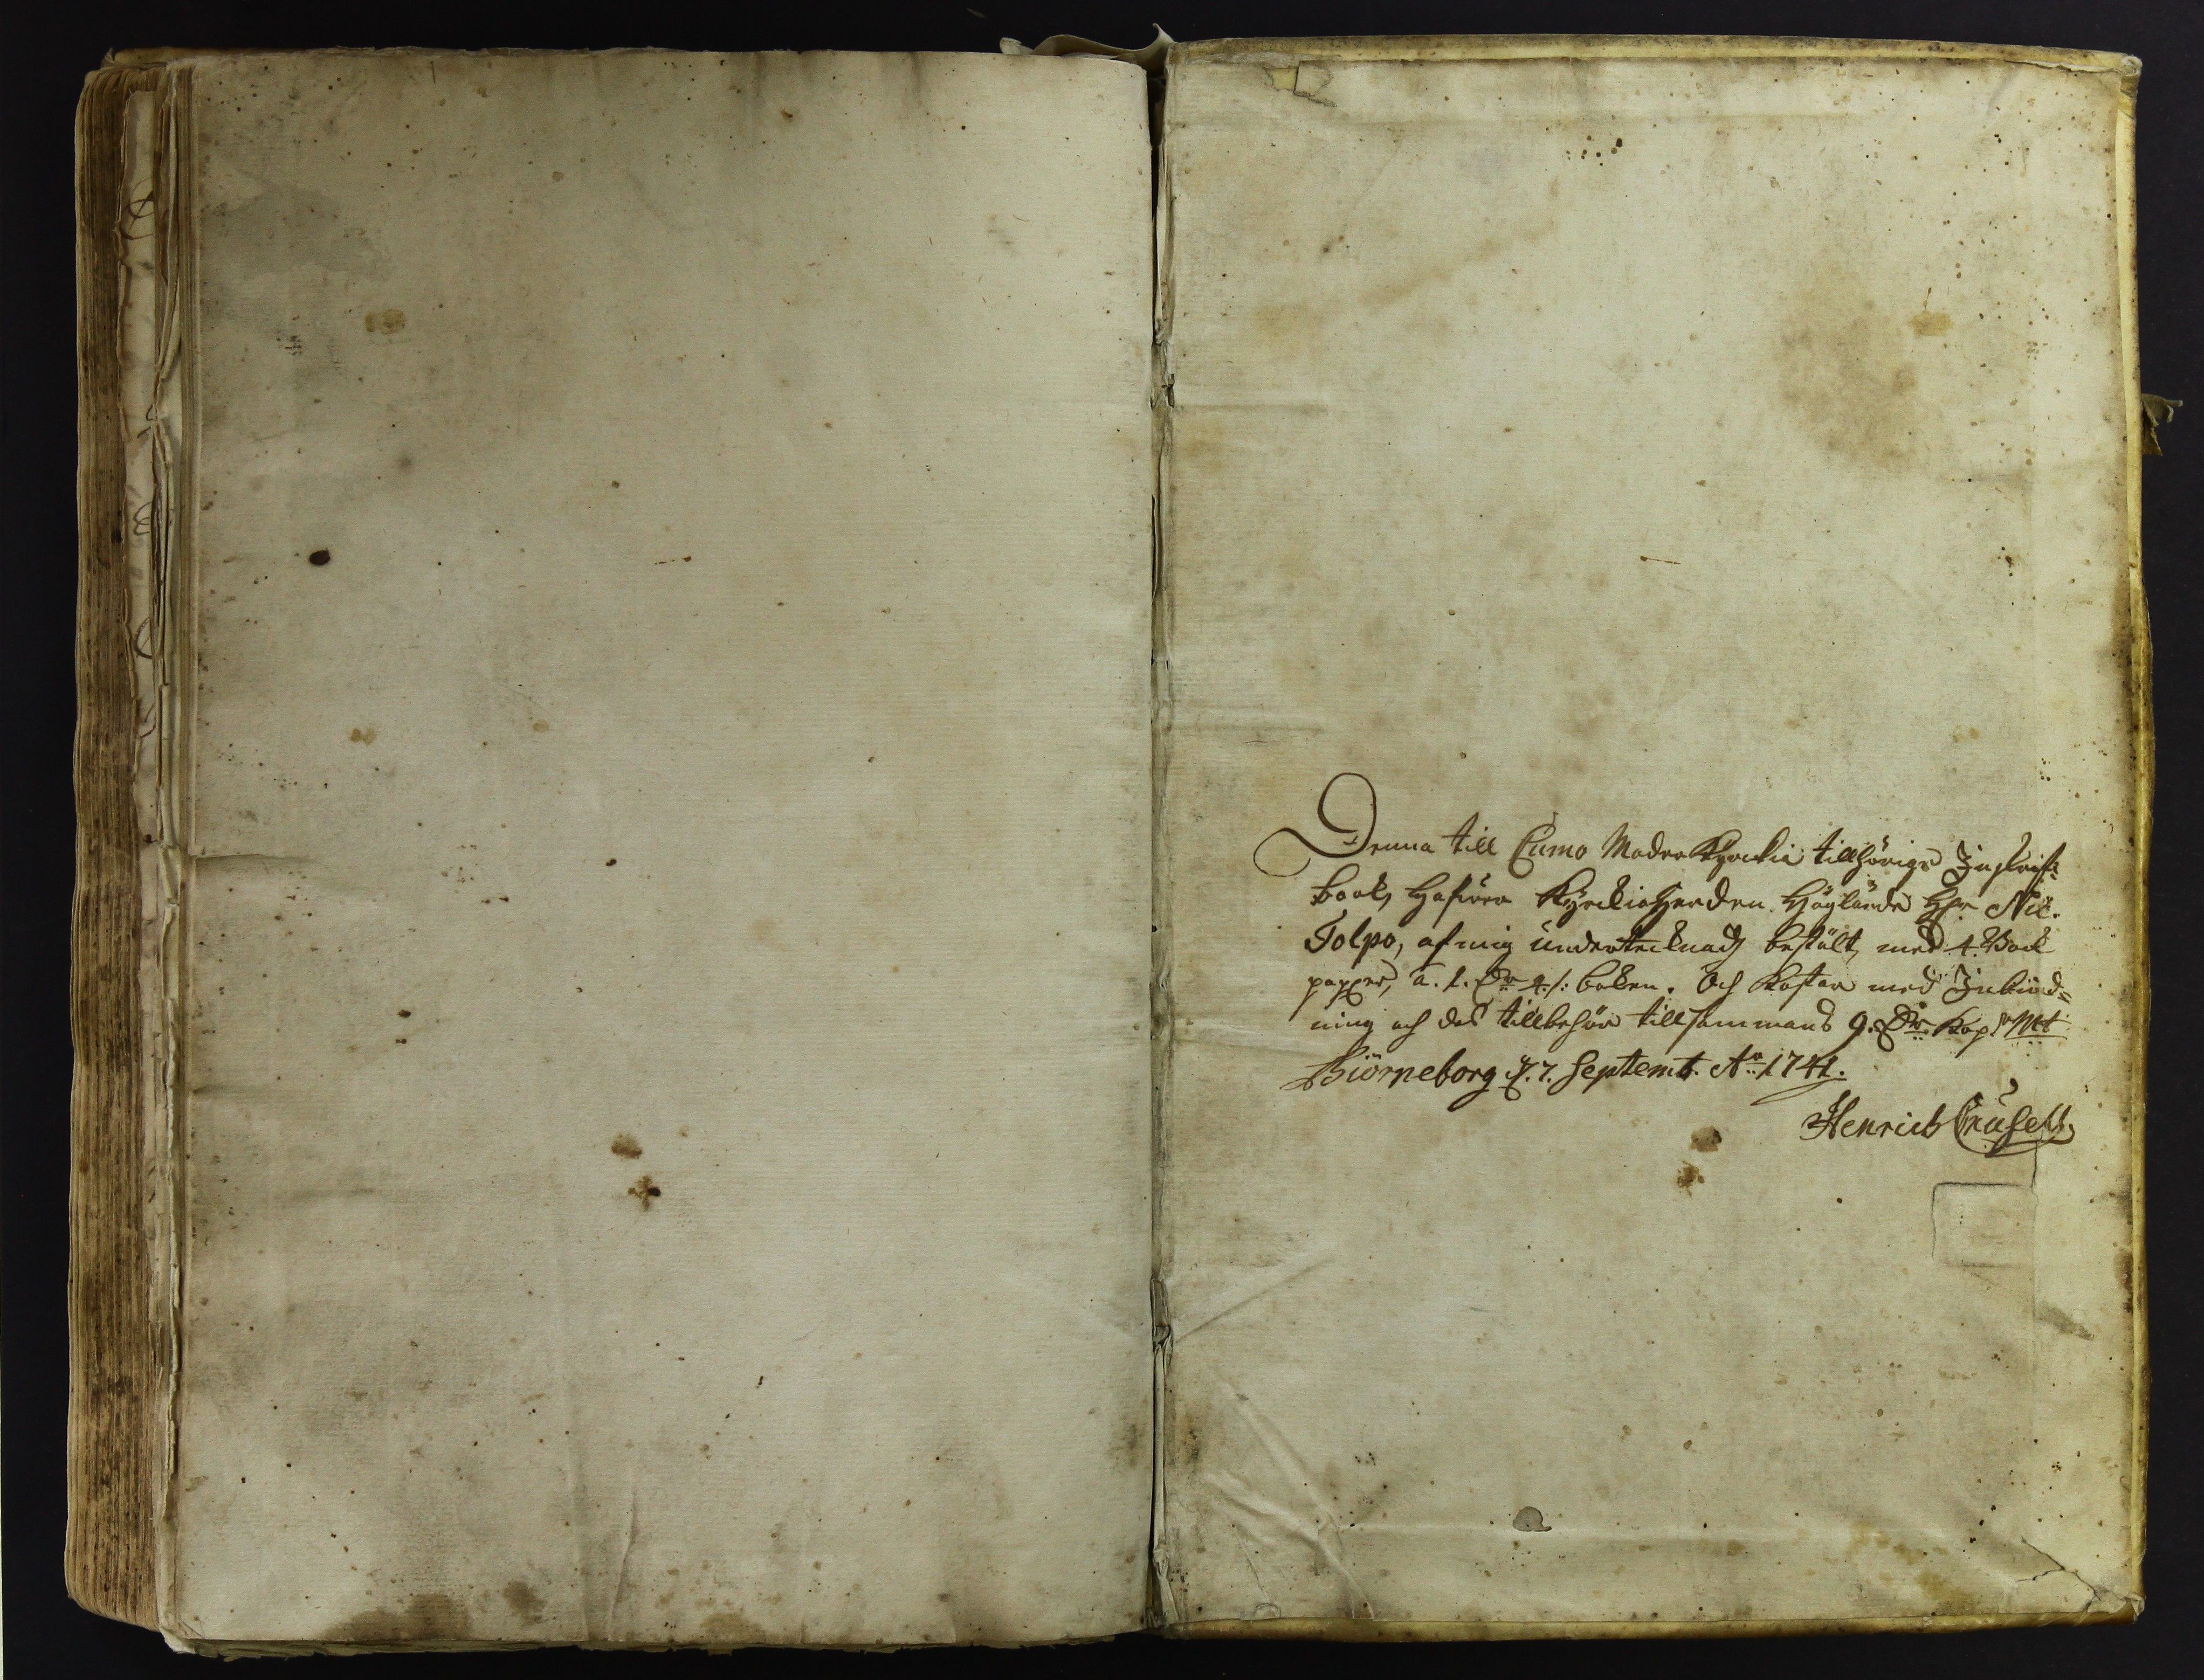 Denna till Cumo Moder Kyrckia tillhörige Inskrifft-
book, hafwer Kyrckioherden Höglärde Hr Nic.
Polpo, af mig undertecknad bestält, med 4. Book
papper, a. 1. Dr 4 /: boken. Och kostar med Inbind=
ning och des tillbehör tillsammans 9. Dr. Kop. Mt
Biörneborg d. 7. Septemb. Ao 1741.
Henrich Crusell